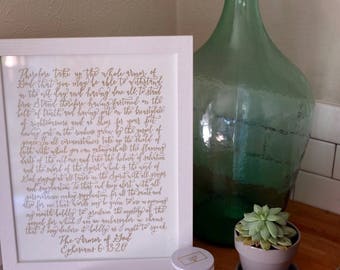 Therefore take up the whole armor of
God that you may be able to withstand
in the evil day and having done all to stand
firm. Stand therefore having fastened on the
belt of truth and having put on the breastplate
of righteousness and as shoes for your feet
having put on the readiness given by the gospel of
peace. In all circumstances take up the shield of
faith with which you can extinguish all the flaming
darts of the evil one and take the helmet of salvation
and the sword of the Spirit which is the word of
God praying at all times in the Spirit with all prayer
and supplication. To that end keep alert with all
perseverance making supplication for all the saints and
also for me that words may be given to me in opening
my mouth boldly to proclaim the mystery of the
gospel for which I am an ambassador in chains
that I may declare it boldly as I ought to speak.
The Armor of God
Ephesians 6:13-20